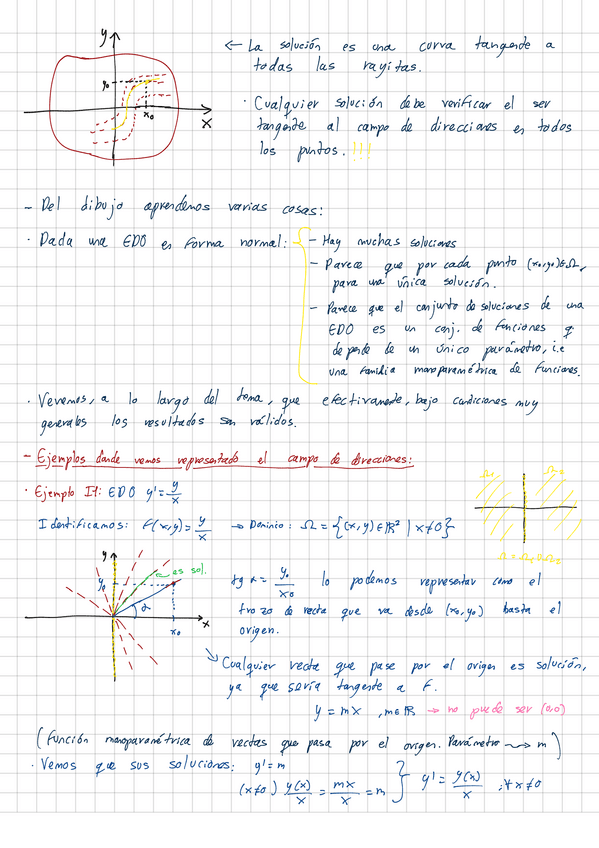 y
y₀
x₀
x
← La solución es una curva tangente a
todas las rayitas.
· Cualquier solución debe verificar el ser
tangente al campo de direcciones en todos
los puntos. !!!
- Del dibujo aprendemos varias cosas:
· Dada una EDO en forma normal:
- Hay muchas soluciones
- Parece que por cada punto (x₀,y₀)∈Ω,
para una única solución.
- Parece que el conjunto de soluciones de una
EDO es un conj. de funciones q
depende de un único parámetro, i.e
una familia monoparamétrica de funciones.
· Veremos, a lo largo del tema, que efectivamente, bajo condiciones muy
generales los resultados son válidos.
- Ejemplos donde vemos representado el campo de direcciones:
· Ejemplo I1: EDO y' = y/x
Identificamos: f(x,y) = y/x → Dominio: Ω = {(x,y) ∈ ℝ² | x ≠ 0}
Ω₁ Ω₂
Ω = Ω₁ ∪ Ω₂
y
y₀
es sol.
α
x₀
x
tg α = y₀/x₀ lo podemos representar como el
trozo de recta que va desde (x₀,y₀) hasta el
origen.
↘ Cualquier recta que pase por el origen es solución,
ya que sería tangente a F.
y = mx , m ∈ ℝ → no puede ser (0,0)
(Función monoparamétrica de rectas que pasa por el origen. Parámetro ⇝ m)
· Vemos que sus soluciones: y' = m
(x≠0) y(x)/x = mx/x = m } y' = y(x)/x , ∀ x ≠ 0